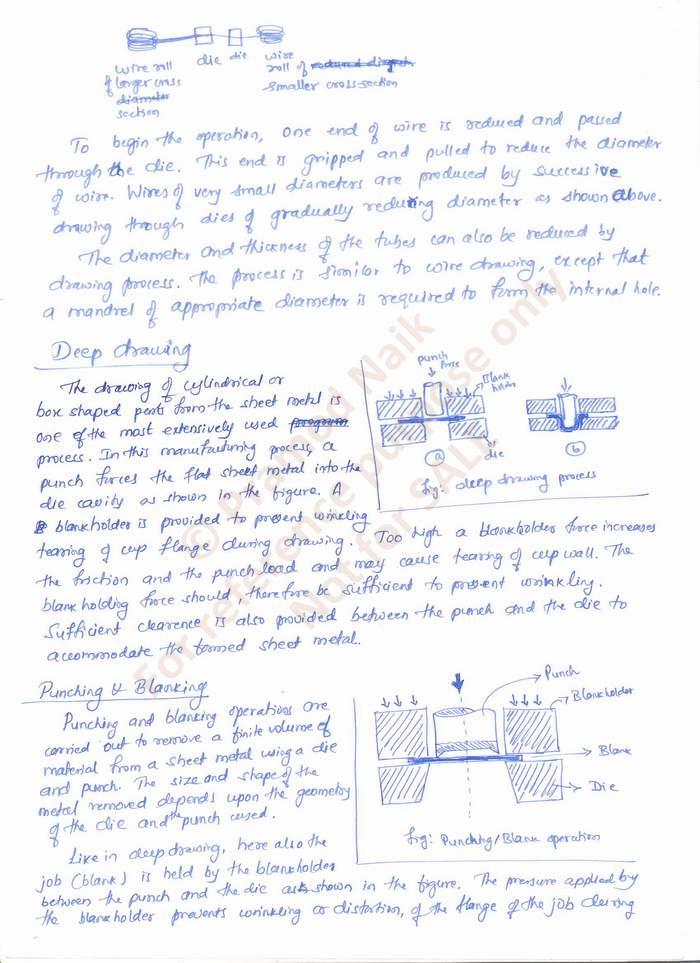 wire roll of larger cross section
die die
wire roll of smaller cross-section
To begin the operation, one end of wire is reduced and passed
through the die. This end is gripped and pulled to reduce the diameter
of wire. Wires of very small diameters are produced by successive
drawing through dies of gradually reducing diameter as shown above.
The diameter and thickness of the tubes can also be reduced by
drawing process. The process is similar to wire drawing, except that
a mandrel of appropriate diameter is required to form the internal hole.
Deep drawing
The drawing of cylindrical or
box shaped parts from the sheet metal is
one of the most extensively used
process. In this manufacturing process, a
punch forces the flat sheet metal into the
die cavity as shown in the figure. A
blankholder is provided to prevent winkling
tearing of cup flange during drawing. Too high a blankholder force increases
the friction and the punch load and may cause tearing of cup wall. The
blank holding force should, therefore be sufficient to prevent wrinkling.
Sufficient clearence is also provided between the punch and the die to
accommodate the formed sheet metal.
punch force
Blank holder
die
a
b
fig: deep drawing process
Punching & Blanking
Punching and blanking operations are
carried out to remove a finite volume of
material from a sheet metal using a die
and punch. The size and shape of the
metal removed depends upon the geometry
of the die and the punch used.
Like in deep drawing, here also the
job (blank) is held by the blankholder
between the punch and the die as shown in the figure. The pressure applied by
the blankholder prevents wrinkling or distortion, of the flange of the job during
Punch
Blankholder
Blank
Die
fig: Punching/Blank operation
© Pramod Naik
For reference purpose only
Not for SALE